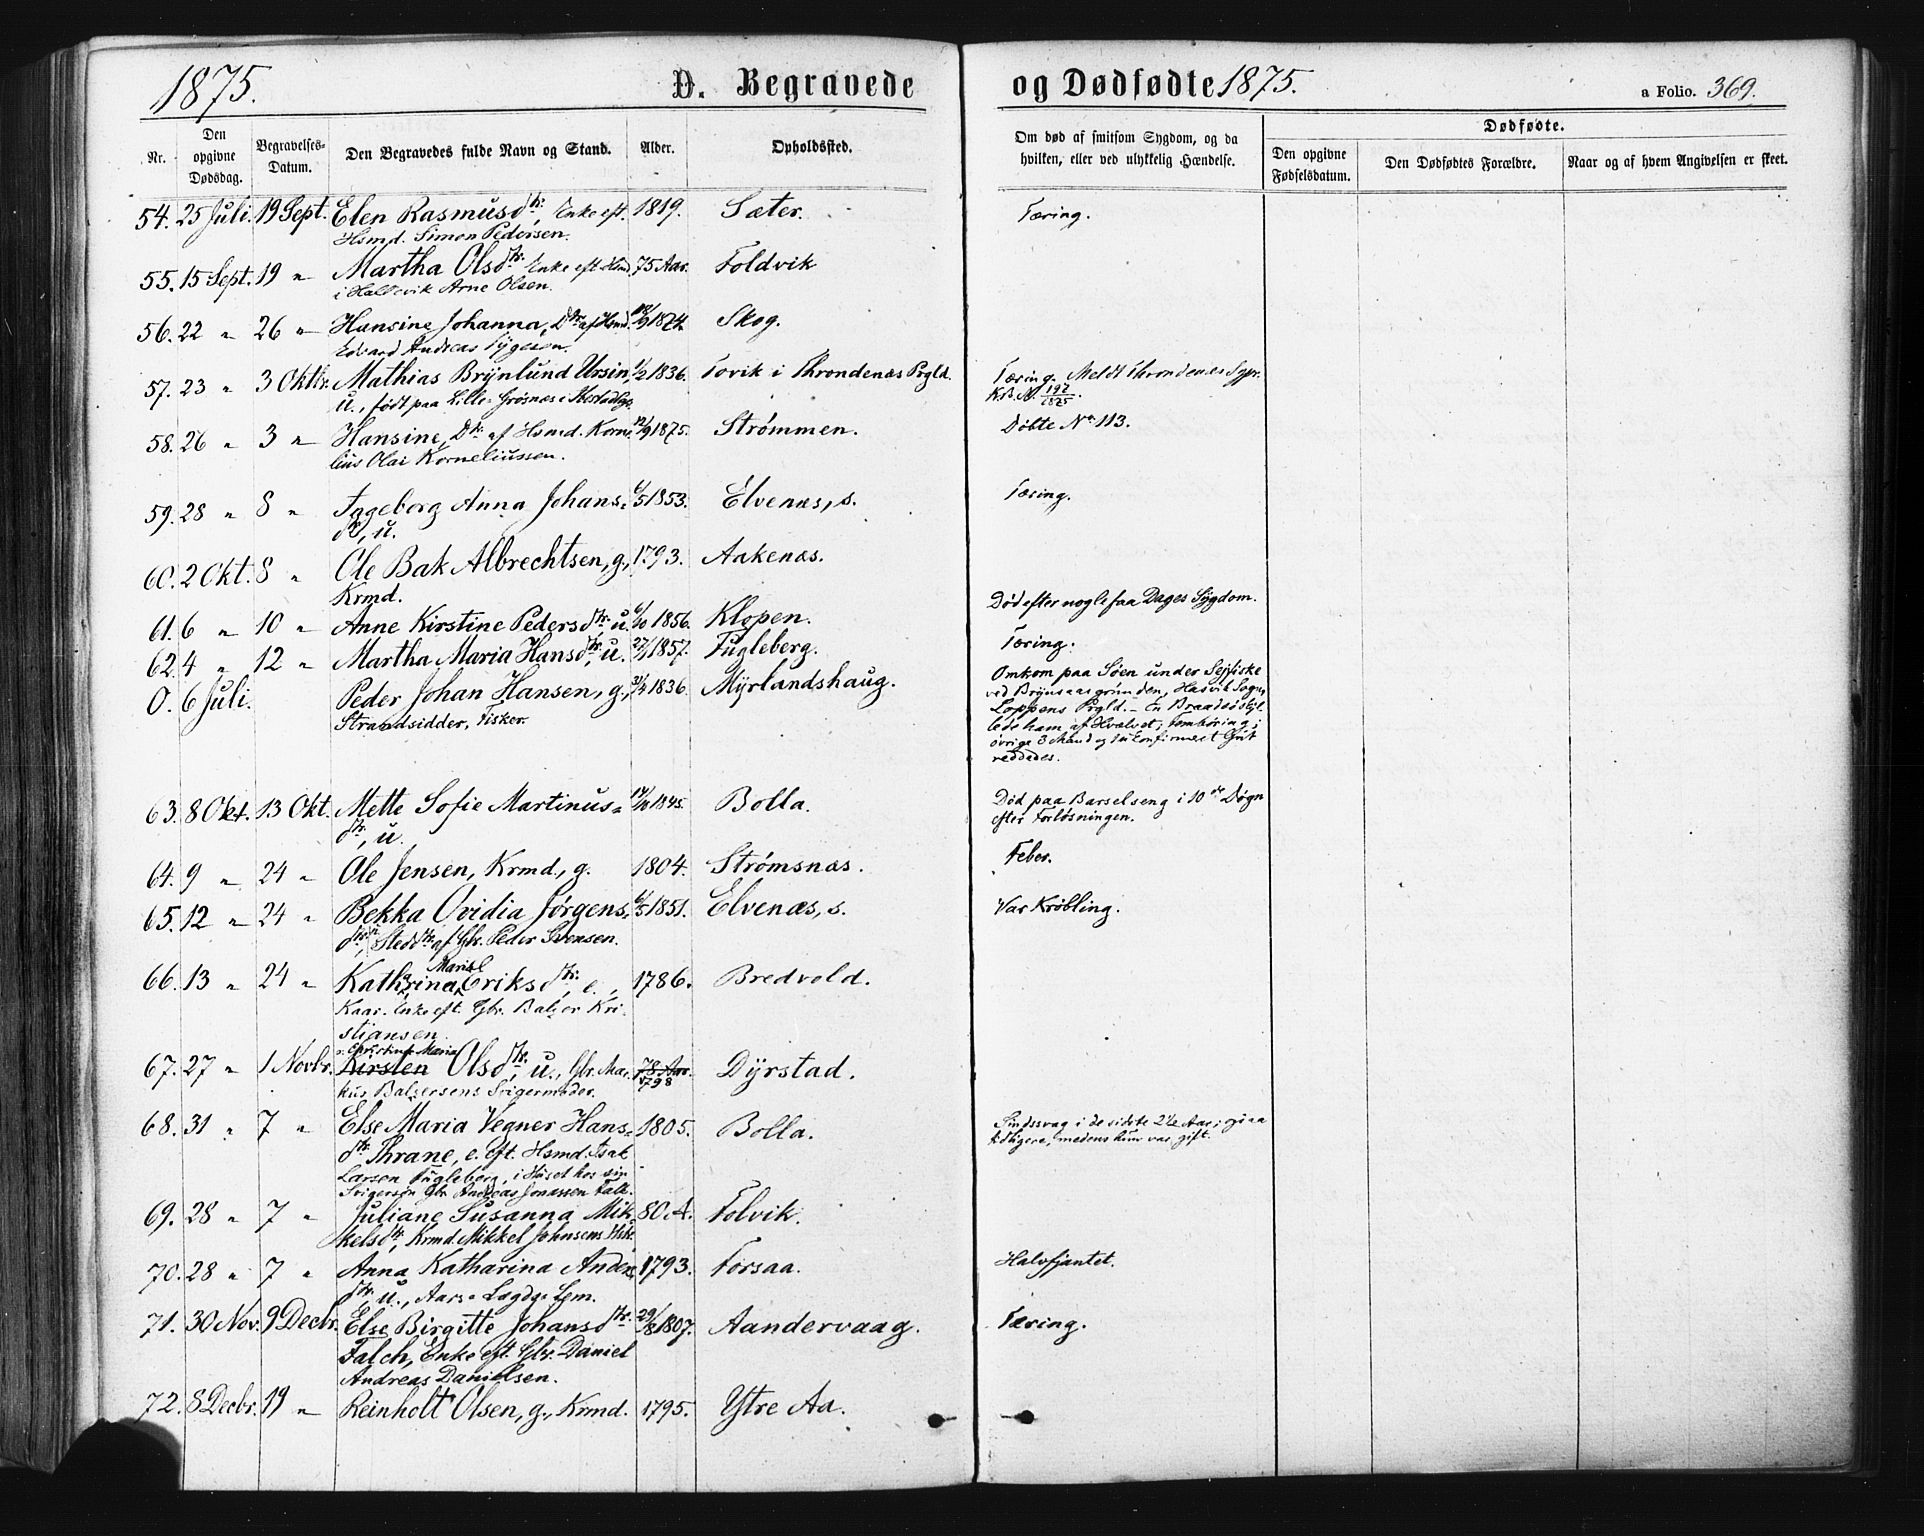 1875. D. Begravede og Dødfødte 1875. a Folio. 369.
Nr. Den opgivne Dødsdag. Begravelses-Datum. Den Begravedes fulde Navn og Stand. Alder. Opholdssted. Om død af smitsom Sygdom, og da hvilken, eller ved ulykkelig Hændelse. Dødfødte.
Den opgivne Fødselsdatum. Den Dødfødtes Forældre. Naar og af hvem Angivelsen er skeet.
54. 25 Juli. 19 Sept. Elen Rasmusdtr., Enke eft. 1819. Sæter. Tæring.
Hsmd. Simon Pedersen.
55. 15 Sept. 19 " Martha Olsdtr. Enke eft Hsmd. 75 Aar. Foldvik
i Hallevik Arne Olsen.
56. 22 " 26 " Hansine Johanna, Dtr. af Hsmd. 18/9 1874. Skog.
Edvard Andreas Tygesen.
57. 23 " 3 Oktbr. Mathias Brynlund Ursin, 1/2 1836. Tovik i Throndenæs Prgld. Tæring. Meldt Throndenæs Sgpr.
u., født paa Lille-Grøsnæs i Ibestad K.B. N. 197/1875.
58. 26 " 3 " Hansine, Dtr. af Hsmd. Korne- 12/9 1875. Strømmen. Døbte No. 113.
lius Olai Korneliussen.
59. 28 " 8 " Ingeborg Anna Johans- 6/5 1853. Elvenæs, s. Tæring.
dtr, u.
60. 2 Okt. 8 " Ole Bak Albrechtsen, g., 1793. Aakenæs.
Krmd.
61. 6 " 10 " Anne Kirstine Pedersdtr. u. 6/10 1856. Klopen. Død efter nogle faa Dages Sygdom.
62. 4 " 12 " Martha Maria Hansdtr., u. 27/1 1857. Fugleberg. Tæring.
0. 6 Juli. Peder Johan Hansen, g., 31/4 1836. Myrlandshaug. Omkom paa Søen under Sejfiske
Strandsidder, Fisker. ved Brynsaasgrunden, Hasvik Sogn,
Loppens Prgld. – En Braadsø skyl-
lede ham af Hvælvet; Fembøring;
øvrige 3 Mand og 1 ukonfirmeret Gut
reddedes.
63. 8 Okt. 13 Okt. Mette Sofie Martinus- 14/10 1845. Bolla. Død paa Barselseng i 10de Døgn
dtr., u. efter Forløsningen.
64. 9 " 24 " Ole Jensen, Krmd., g. 1804. Strømsnæs. Feber.
65. 12 " 24 " Bekka Ovidia Jørgens- 6/5 1851. Elvenæs, s. Var Krøbling.
dtr., Steddtr. af Gbr. Peder Svensen.
66. 13 " 24 " Kathrina Eriksdtr., e., 1786. Bredvold.
Kaar. Enke eft. Gbr. Balzer Kri-
stiansen.
Christina Maria
67. 27 " 1 Novbr. Kirsten Olsdtr., u., Gbr. Mar- 78 Aar. Dyrstad.
kus Balsersens Svigermoder. 1798
68. 31 " 7 " Else Maria Vegner Hans- 1805. Bolla. Sindssvag i de sidste 2½ Aar; ogsaa
dtr. Thrane, e. eft. Hsmd. Isak tidligere, medens hun var gift.
Larsen Fugleberg, i Huset hos sin
Svigersøn Gbr. Andreas Jonassen Falk.
69. 28 " 7 " Juliane Susanna Mik- 80 A. Tolvik.
kelsdtr., Krmd. Mikkel Johnsens Hstr.
70. 28 " 7 " Anna Katharina Anders- 1793. Forsaa. Halvfjantet.
dtr., u., Aars-Lægds-Lem.
71. 30 Nov. 9 Decbr. Else Birgitte Johansdtr. 29/8 1807. Aandervaag. Tæring.
Falch, Enke eft. Gbr. Daniel
Andreas Danielsen.
72. 8 Decbr. 19 " Reinholt Olsen, g., Krmd. 1795. Ytre Aa.